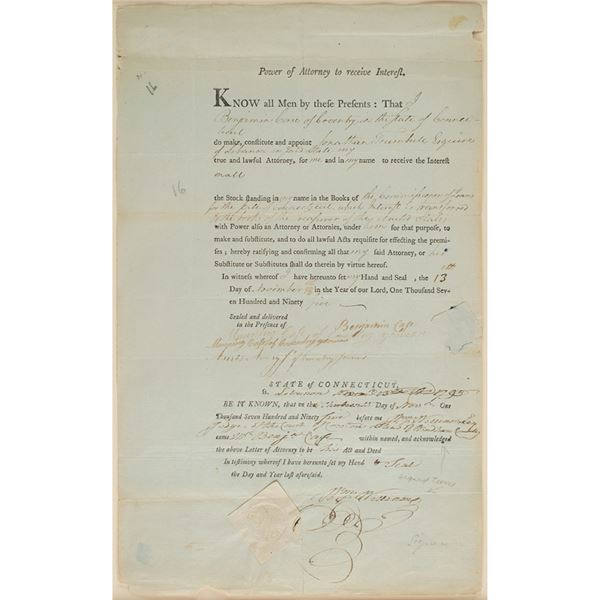 16
Power of Attorney to receive Interest.
KNOW all Men by these Presents: That I
Benjamin of Coventry in the state of Connec-
ticut
do make, constitute and appoint Jonathan Trumbull Esquire
of Lebanon in said State my
true and lawful Attorney, for me and in my name to receive the Interest
on all
16
the Stock standing in my name in the Books of the Commissioner of Loans
for the State of Connecticut, which Interest is transferred
to the books of the of the United States
with Power also an Attorney or Attornies, under him for that purpose, to
make and substitute, and to do all lawful Acts requisite for effecting the premi-
ses; hereby ratifying and confirming all that my said Attorney, or his
Substitute or Substitutes shall do therein by virtue hereof.
In witness whereof I have hereunto set my Hand and Seal, the 13th
Day of November in the Year of our Lord, One Thousand Sev-
en Hundred and Ninety five
Sealed and delivered
in the Presence of
Benjamin
of Coventry
STATE of CONNECTICUT,
ss. Lebanon 1795
BE IT KNOWN, that on the Day of Nov. One
Thousand Seven Hundred and Ninety five before me Wm Williams Esq
Judge of the Court of
came Mr. Benja within named, and acknowledged
the above Letter of Attorney to be his Act and Deed
In testimony whereof I have hereunto set my Hand & Seal
the Day and Year last aforesaid.
signed twice
Wm Williams
Signer